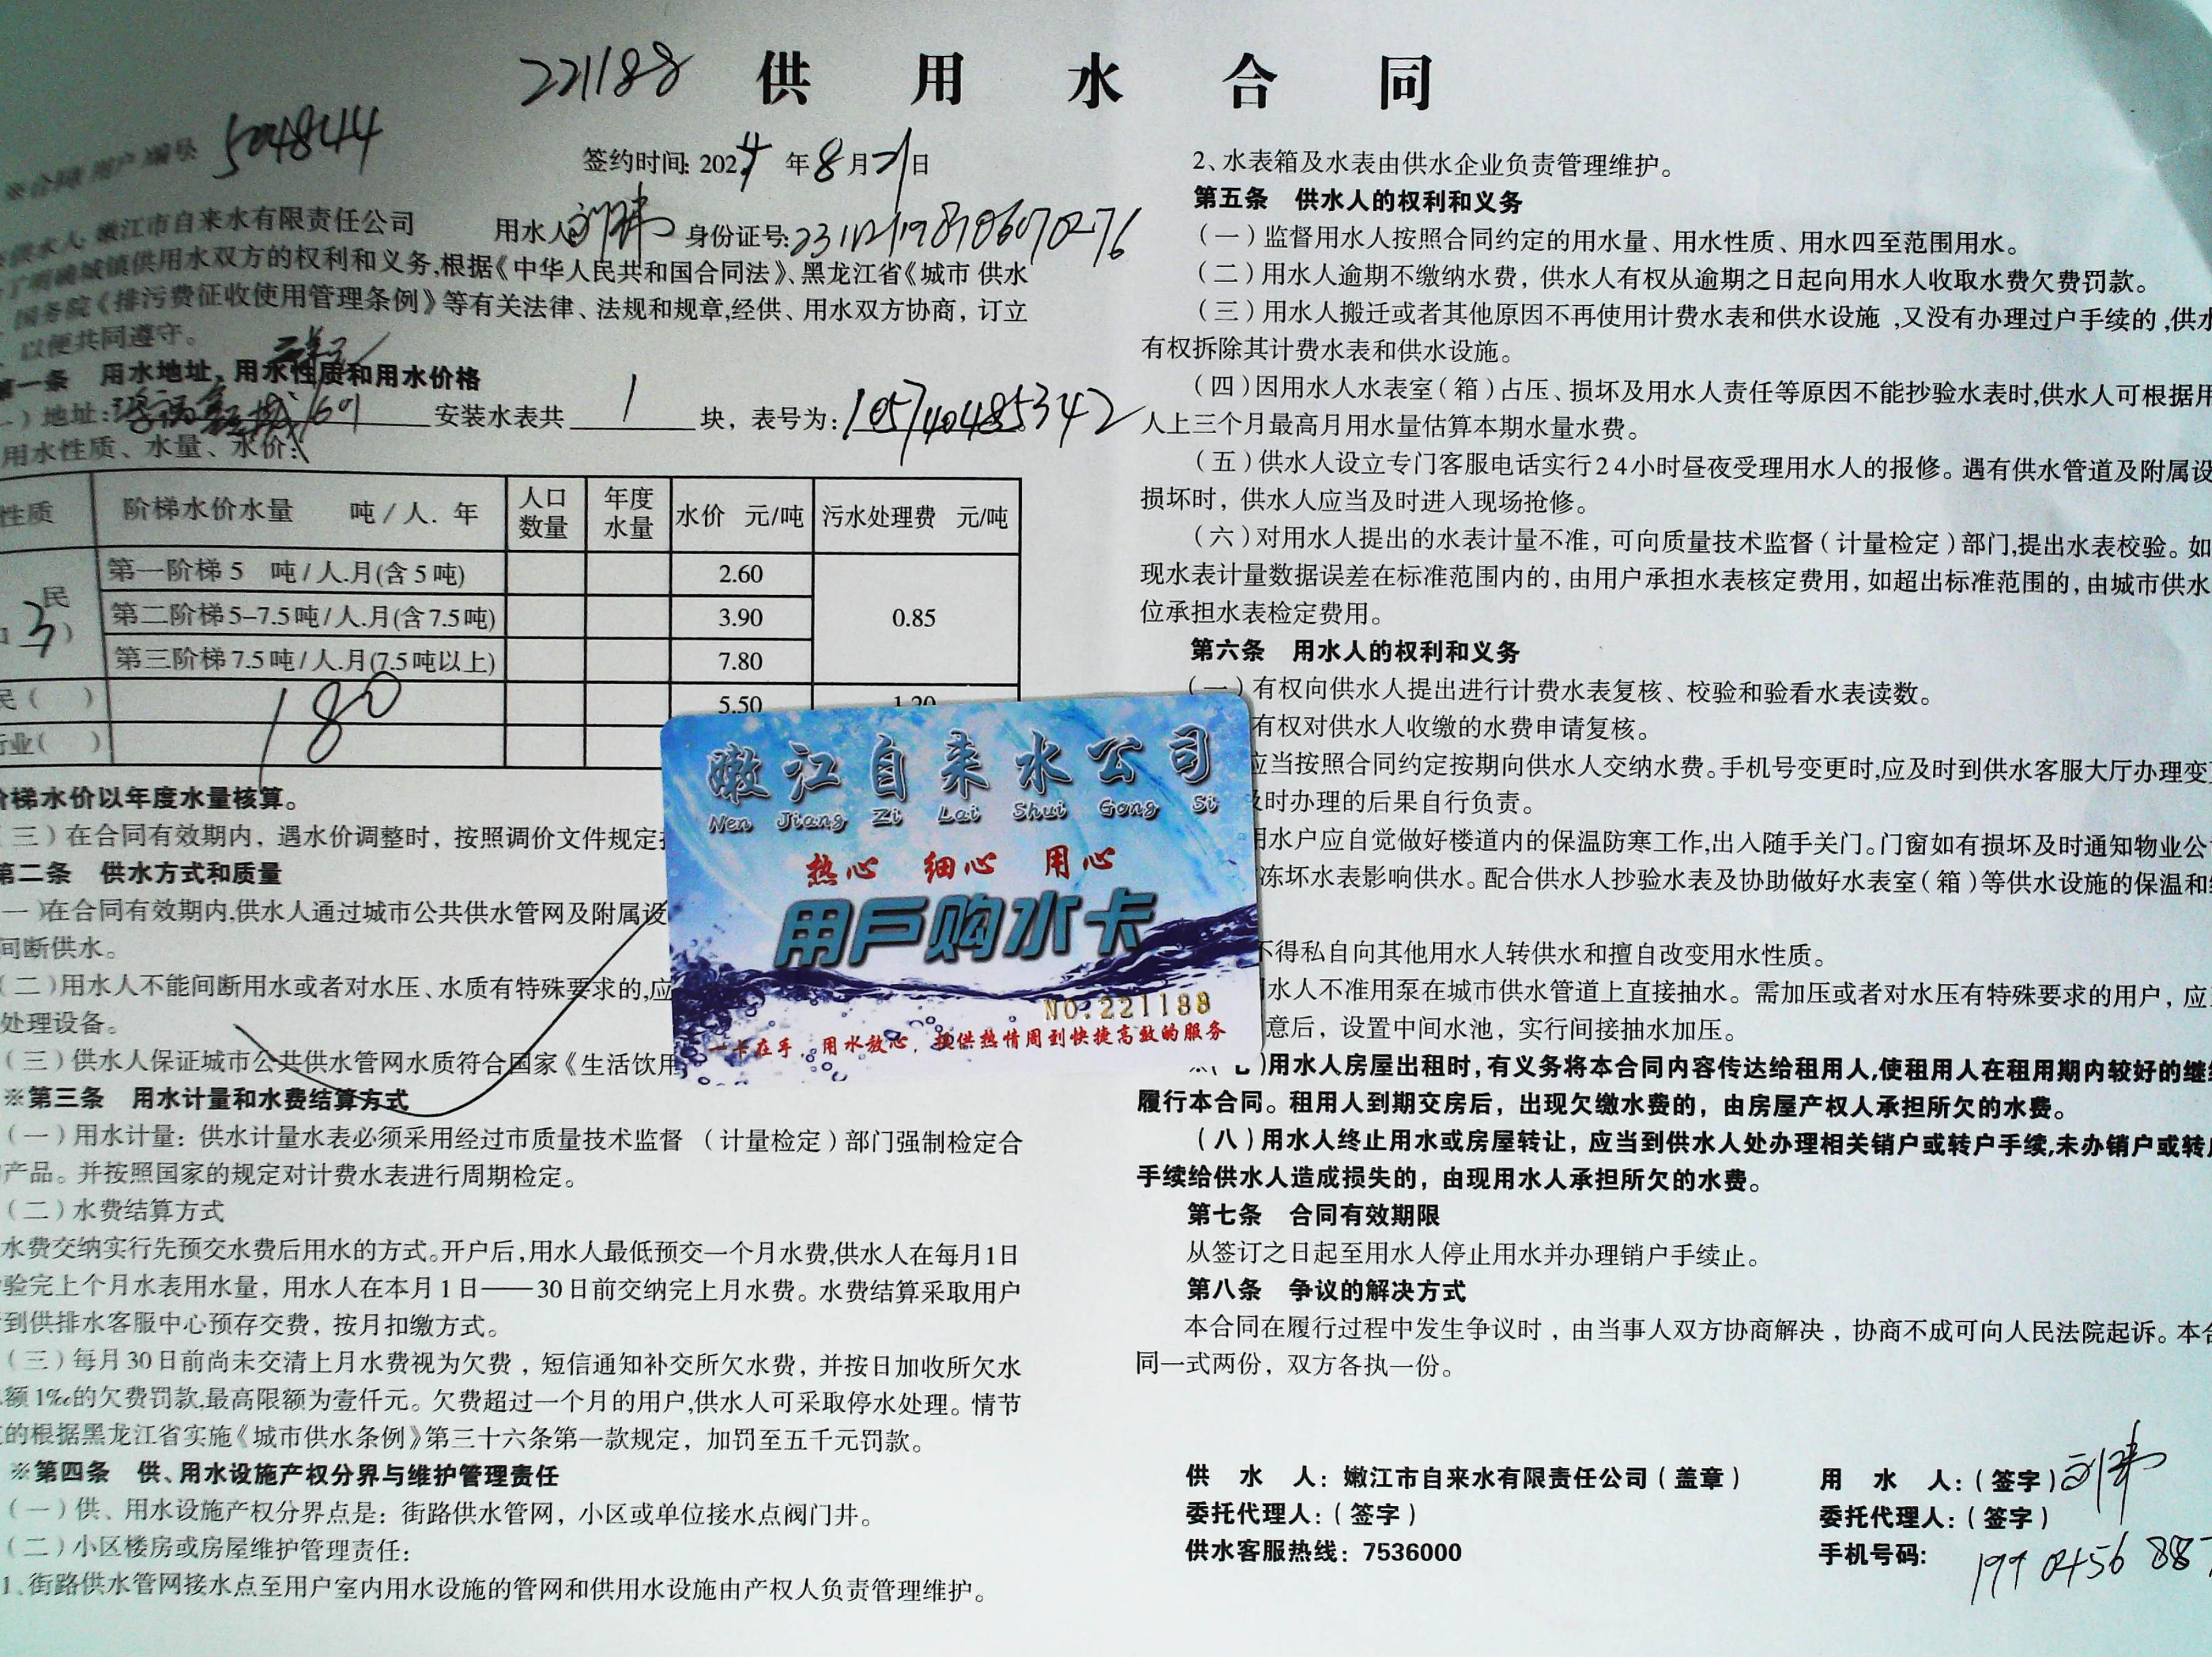 221188 供 用 水 合 同
※合同(用户)编号 504844
签约时间: 2024 年 8 月 21 日
供水人 嫩江市自来水有限责任公司 用水人 身份证号:
了明确城镇供用水双方的权利和义务,根据《中华人民共和国合同法》、黑龙江省《城市 供水
国务院《排污费征收使用管理条例》等有关法律、法规和规章,经供、用水双方协商，订立
以便共同遵守。
第一条 用水地址、用水性质和用水价格
一）地址: 安装水表共 1 块，表号为: 105740485342
用水性质、水量、水价:
性质 阶梯水价水量 吨/人. 年 人口数量 年度水量 水价 元/吨 污水处理费 元/吨
民 3 ) 第一阶梯 5 吨/人.月(含 5 吨) 2.60 0.85
第二阶梯 5-7.5 吨/人.月(含 7.5 吨) 3.90
第三阶梯 7.5 吨/人.月(7.5 吨以上) 7.80
民 ( ) 180 5.50 1.20
行业( )
阶梯水价以年度水量核算。
（三）在合同有效期内，遇水价调整时，按照调价文件规定
第二条 供水方式和质量
一)在合同有效期内,供水人通过城市公共供水管网及附属设
间断供水。
（二)用水人不能间断用水或者对水压、水质有特殊要求的,应
处理设备。
（三）供水人保证城市公共供水管网水质符合国家《生活饮用
※第三条 用水计量和水费结算方式
（一）用水计量：供水计量水表必须采用经过市质量技术监督 （计量检定）部门强制检定合
产品。并按照国家的规定对计费水表进行周期检定。
（二）水费结算方式
水费交纳实行先预交水费后用水的方式。开户后,用水人最低预交一个月水费,供水人在每月1日
验完上个月水表用水量，用水人在本月 1 日——30 日前交纳完上月水费。水费结算采取用户
到供排水客服中心预存交费，按月扣缴方式。
（三）每月 30 日前尚未交清上月水费视为欠费，短信通知补交所欠水费，并按日加收所欠水
额 1‰的欠费罚款,最高限额为壹仟元。欠费超过一个月的用户,供水人可采取停水处理。情节
的根据黑龙江省实施《城市供水条例》第三十六条第一款规定，加罚至五千元罚款。
※第四条 供、用水设施产权分界与维护管理责任
（一）供、用水设施产权分界点是：街路供水管网，小区或单位接水点阀门井。
（二）小区楼房或房屋维护管理责任：
1、街路供水管网接水点至用户室内用水设施的管网和供用水设施由产权人负责管理维护。
2、水表箱及水表由供水企业负责管理维护。
第五条 供水人的权利和义务
（一）监督用水人按照合同约定的用水量、用水性质、用水四至范围用水。
（二）用水人逾期不缴纳水费，供水人有权从逾期之日起向用水人收取水费欠费罚款。
（三）用水人搬迁或者其他原因不再使用计费水表和供水设施 ,又没有办理过户手续的 ,供水
有权拆除其计费水表和供水设施。
（四）因用水人水表室（箱）占压、损坏及用水人责任等原因不能抄验水表时,供水人可根据用
人上三个月最高月用水量估算本期水量水费。
（五）供水人设立专门客服电话实行24小时昼夜受理用水人的报修。遇有供水管道及附属设
损坏时，供水人应当及时进入现场抢修。
（六）对用水人提出的水表计量不准，可向质量技术监督（计量检定）部门,提出水表校验。如
现水表计量数据误差在标准范围内的，由用户承担水表核定费用，如超出标准范围的，由城市供水
位承担水表检定费用。
第六条 用水人的权利和义务
（一）有权向供水人提出进行计费水表复核、校验和验看水表读数。
有权对供水人收缴的水费申请复核。
应当按照合同约定按期向供水人交纳水费。手机号变更时,应及时到供水客服大厅办理变
及时办理的后果自行负责。
用水户应自觉做好楼道内的保温防寒工作,出入随手关门。门窗如有损坏及时通知物业公
冻坏水表影响供水。配合供水人抄验水表及协助做好水表室（箱）等供水设施的保温和
不得私自向其他用水人转供水和擅自改变用水性质。
水人不准用泵在城市供水管道上直接抽水。需加压或者对水压有特殊要求的用户，应
意后，设置中间水池，实行间接抽水加压。
)用水人房屋出租时,有义务将本合同内容传达给租用人,使租用人在租用期内较好的继
履行本合同。租用人到期交房后，出现欠缴水费的，由房屋产权人承担所欠的水费。
（八）用水人终止用水或房屋转让，应当到供水人处办理相关销户或转户手续,未办销户或转
手续给供水人造成损失的，由现用水人承担所欠的水费。
第七条 合同有效期限
从签订之日起至用水人停止用水并办理销户手续止。
第八条 争议的解决方式
本合同在履行过程中发生争议时，由当事人双方协商解决，协商不成可向人民法院起诉。本合
同一式两份，双方各执一份。
供 水 人：嫩江市自来水有限责任公司（盖章）
委托代理人:（签字）
供水客服热线：7536000
用 水 人:（签字）
委托代理人:（签字）
手机号码: 199 0456 887
嫩江自来水公司
Nen Jiang Zi Lai Shui Gong Si
热心 细心 用心
用户购水卡
NO:221188
一卡在手，用水放心，提供热情周到快捷高效的服务